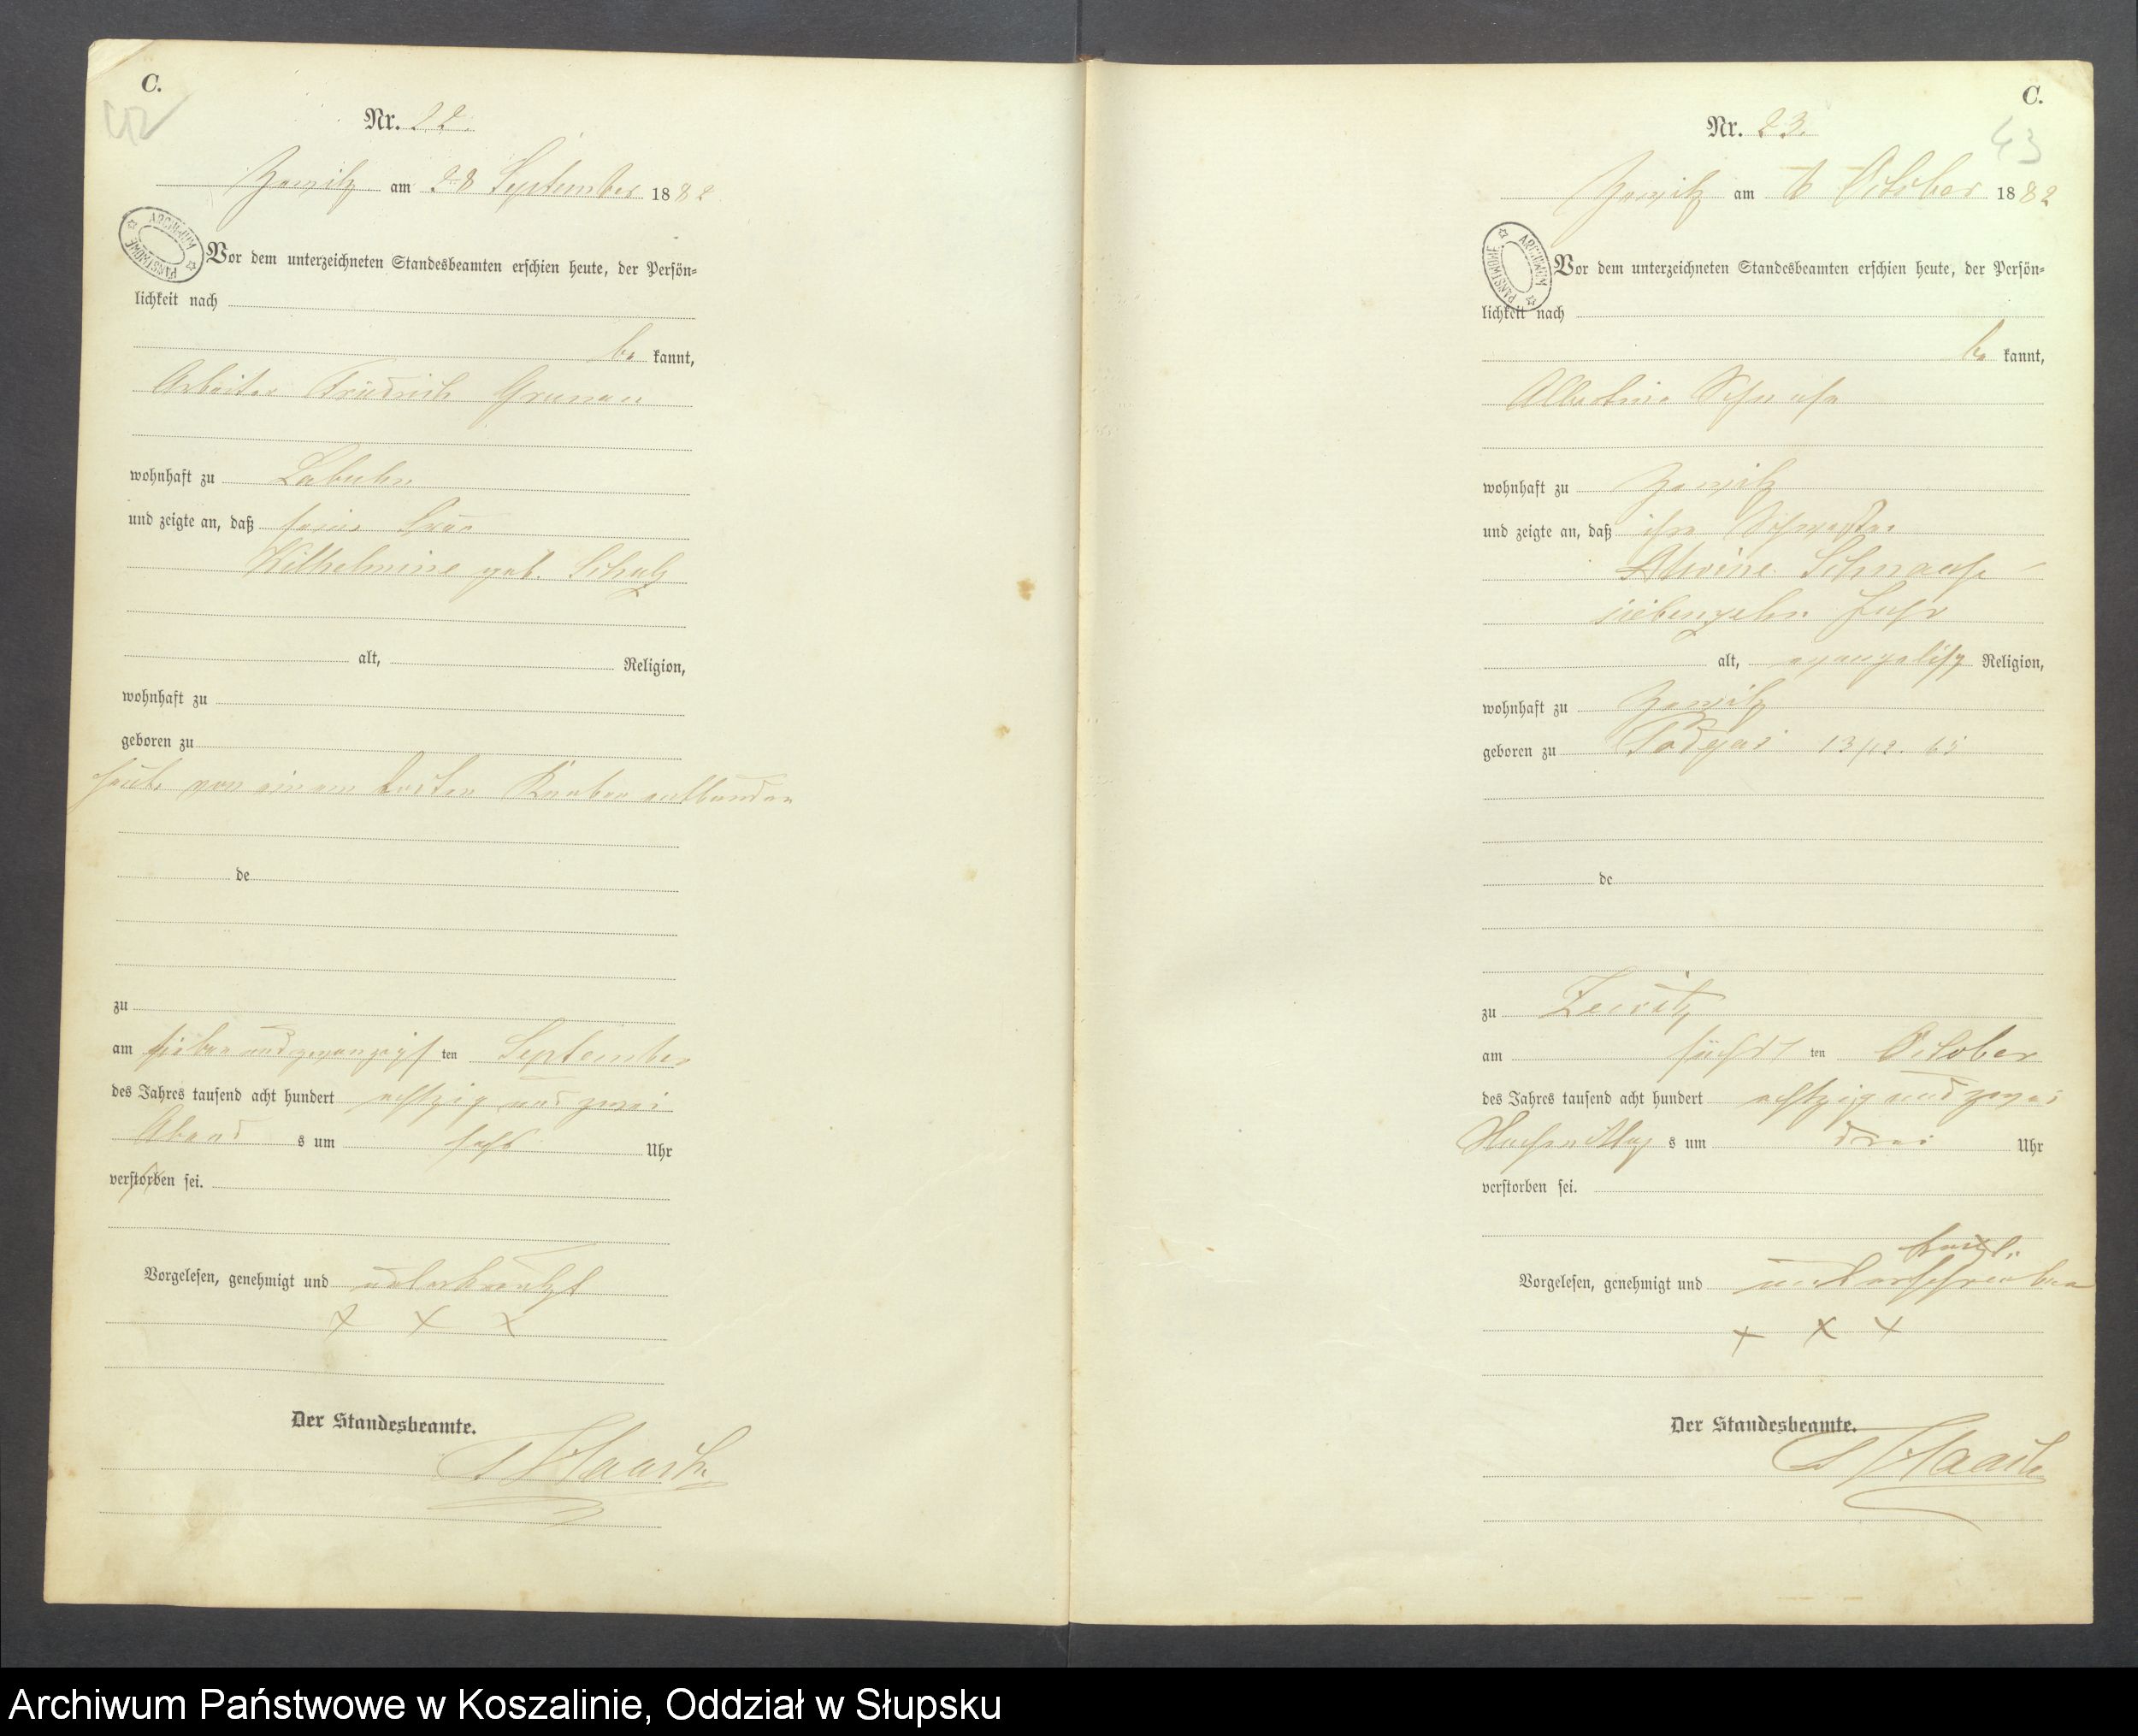 C.
42
Nr. 22.
Zewitz am 28 September 1882
ARCHIWUM PAŃSTWOWE
Vor dem unterzeichneten Standesbeamten erschien heute, der Persön-
lichkeit nach
be kannt,
Arbeiter Friedrich Grunau
wohnhaft zu Labuhn
und zeigte an, daß seine Frau
Wilhelmine geb. Schulz
alt, Religion,
wohnhaft zu
geboren zu
heute von einem todten Knaben entbunden
de
zu
am sieben und zwanzigs ten September
des Jahres tausend acht hundert achtzig und zwei
Abend s um sechs Uhr
verstorben sei.
Vorgelesen, genehmigt und unterkreuzt
x x x
Der Standesbeamte.
C.
43
Nr. 23.
Zewitz am 6 October 1882
ARCHIWUM PAŃSTWOWE
Vor dem unterzeichneten Standesbeamten erschien heute, der Persön-
lichkeit nach
be kannt,
Albertine
wohnhaft zu Zewitz
und zeigte an, daß ihre Schwester
Alwine
siebenzehn Jahr
alt, evangelisch Religion,
wohnhaft zu Zewitz
geboren zu 13/12. 65
de
zu Zewitz
am sechst ten October
des Jahres tausend acht hundert achtzig und zwei
Nachmittag s um drei Uhr
verstorben sei.
Vorgelesen, genehmigt und unterschrieben
x x x
Der Standesbeamte.
Archiwum Państwowe w Koszalinie, Oddział w Słupsku